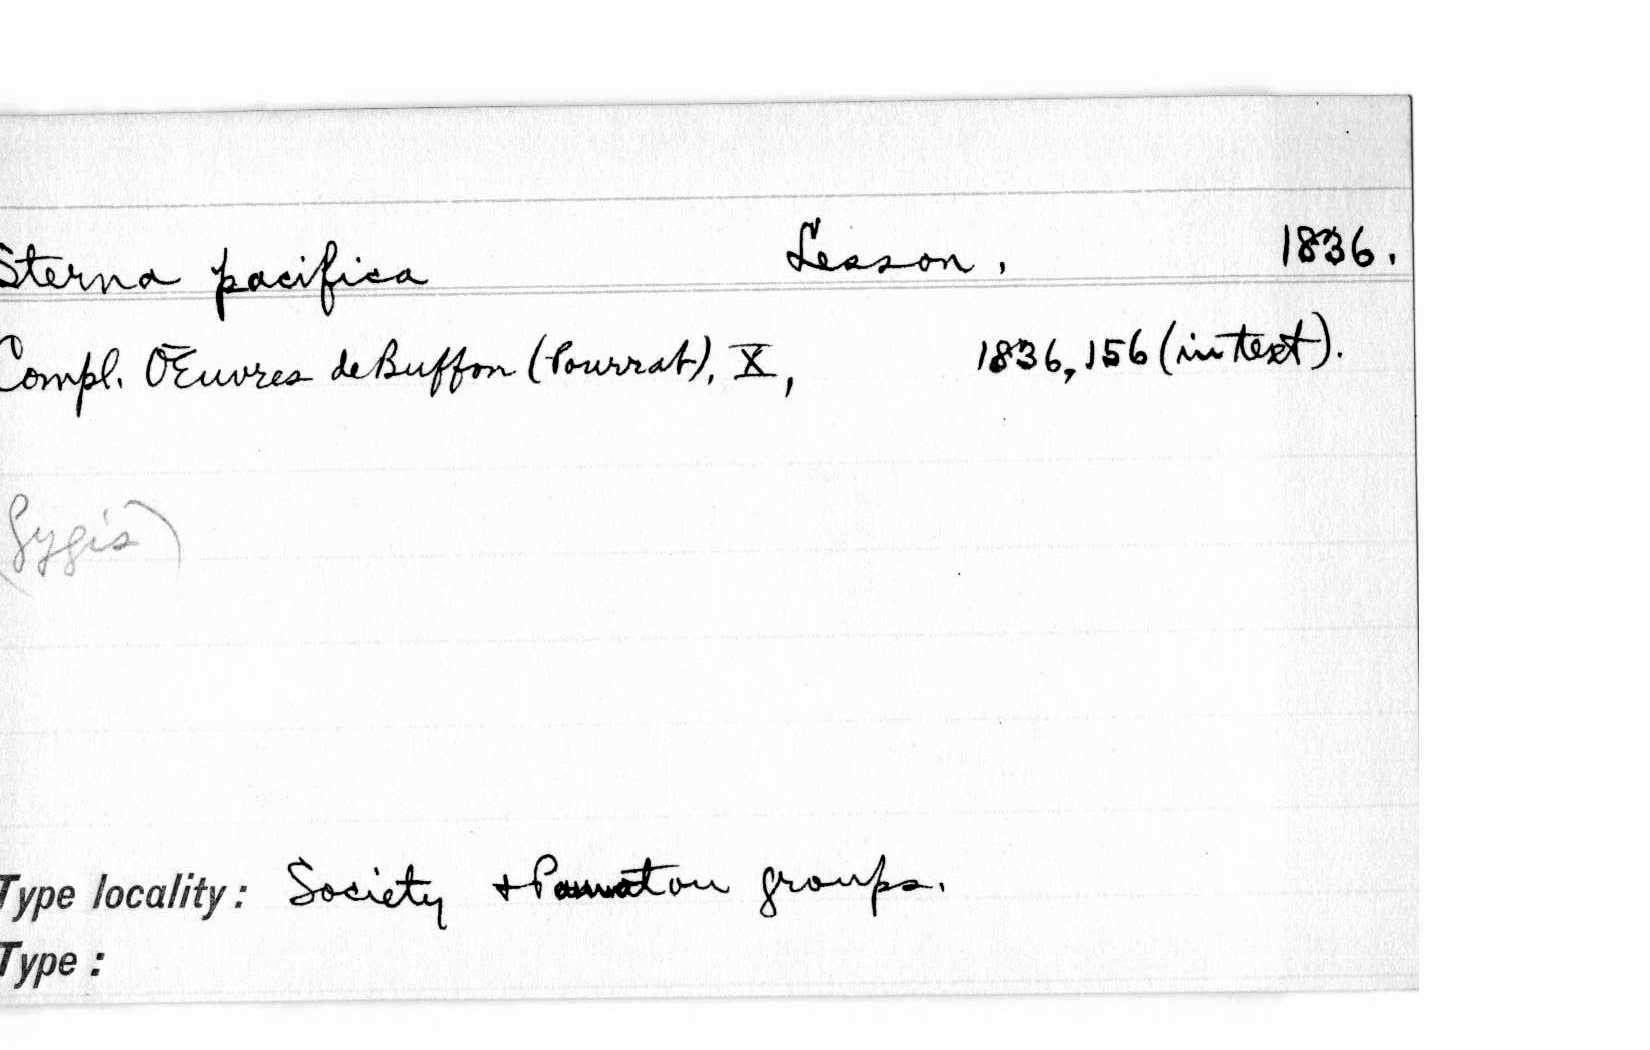 Sterna pacifica Lesson, 1836.
Compl. OEuvres de Buffon (Pourrat), X, 1836, 156 (in text).
(Gygis)
Type locality: Society + groups.
Type: